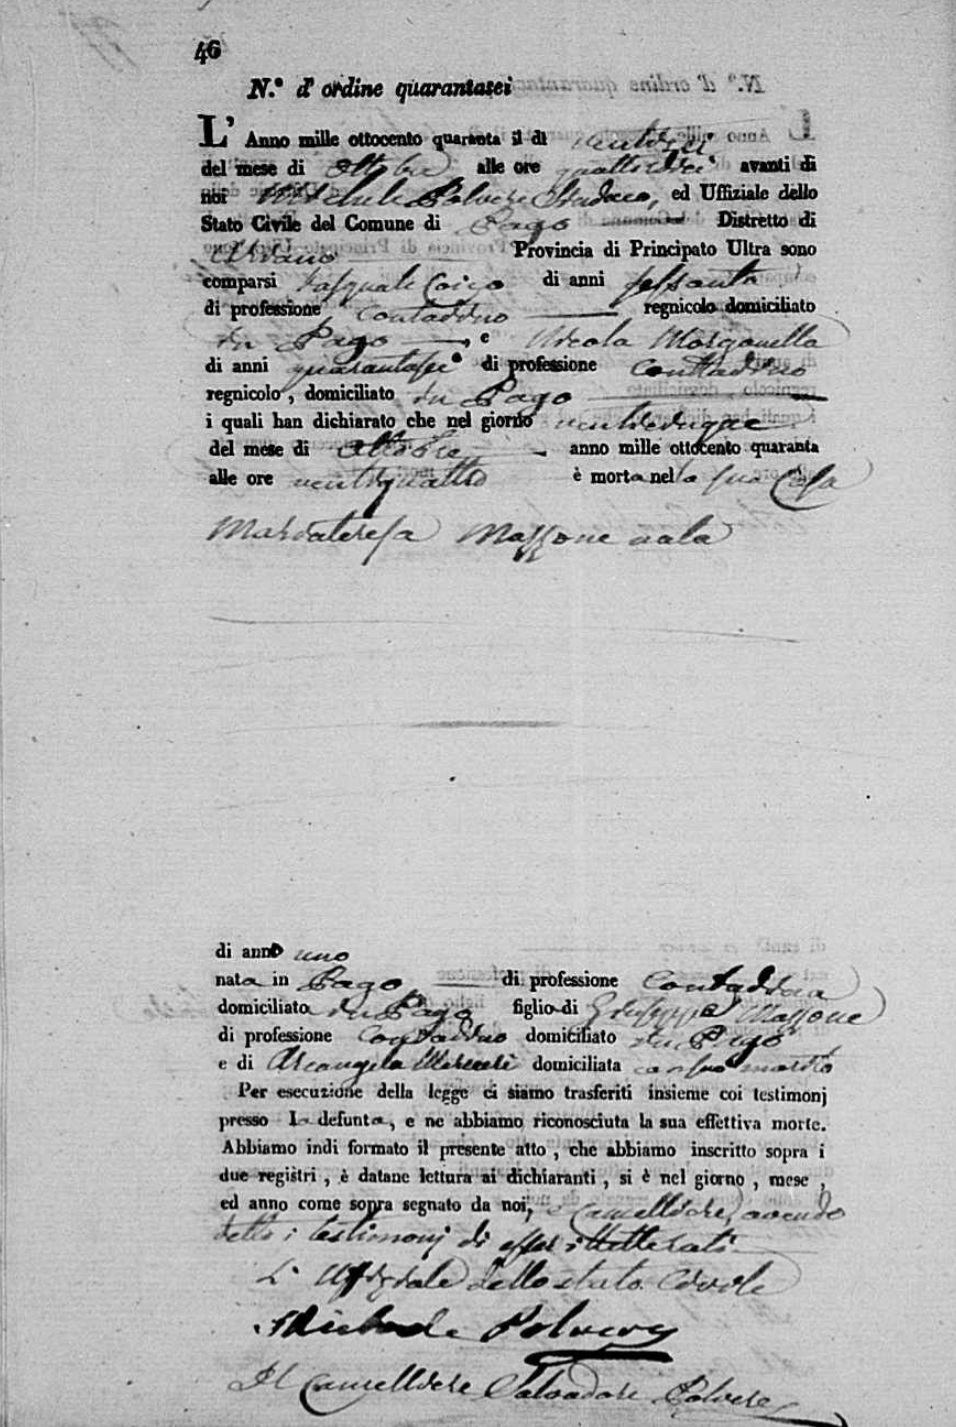 46
N.° d' ordine quarantasei
L' Anno mille ottocento quaranta il dì ventisei
del mese di Ottobre alle ore quattordici avanti di
noi Michele Polvere Sindaco, ed Uffiziale dello
Stato Civile del Comune di Pago Distretto di
Ariano Provincia di Principato Ultra sono
comparsi Pasquale Coico di anni sessanta
di professione Contadino regnicolo domiciliato
in Pago e Nicola Morganella
di anni quarantasei di professione Contadino
regnicolo, domiciliato in Pago
i quali han dichiarato che nel giorno venticinque
del mese di Ottobre anno mille ottocento quaranta
alle ore ventiquattro è morta nella sua Casa
Mariateresa Massone nata
di anno uno
nata in Pago di professione Contadina
domiciliata in Pago figlio di Giuseppe Massone
di professione Contadino domiciliato in Pago
e di Arcangela domiciliata con suo marito
Per esecuzione della legge ci siamo trasferiti insieme coi testimonj
presso la defunta, e ne abbiamo riconosciuta la sua effettiva morte.
Abbiamo indi formato il presente atto, che abbiamo inscritto sopra i
due registri, è datane lettura ai dichiaranti, si è nel giorno, mese,
ed anno come sopra segnato da noi, e Cancelliere, avendo
detto i testimonj di esser illetterati
L' Uffiziale dello stato Civile
Michele Polvere
Il Cancelliere Salvadore Polvere